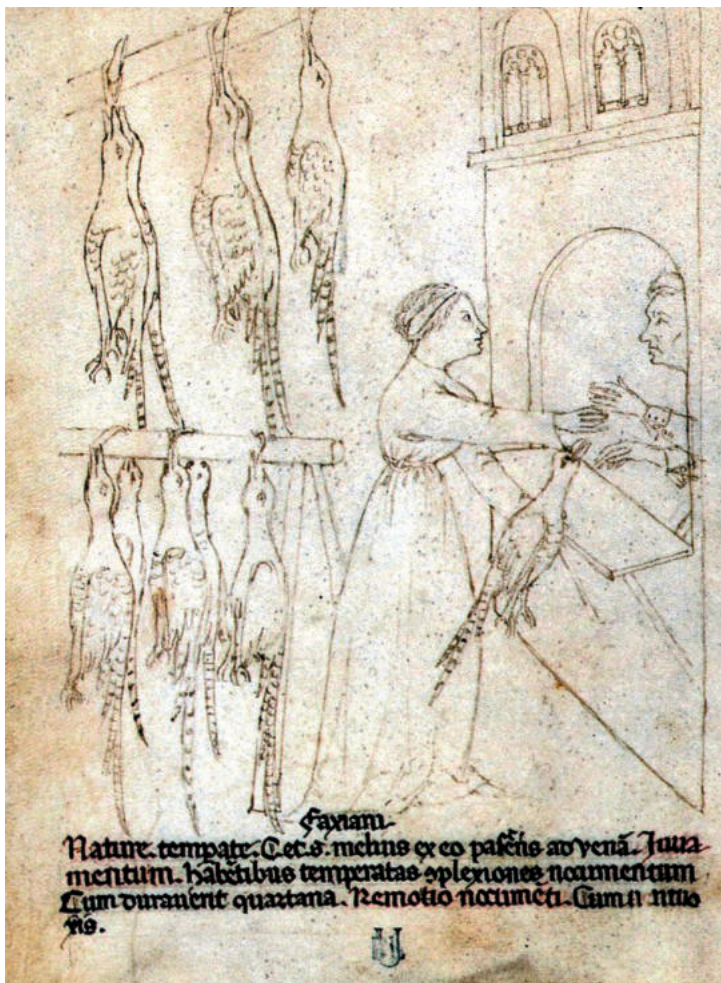 Faxiani
Nature. tempate. Et.s. melius ex eo pascēs ad venā. Juua
mentum. habētibus temperatas ꝯplexiones nocumentum
Cum durauerit quartana. Remotio nocumēti. Cum
ris.